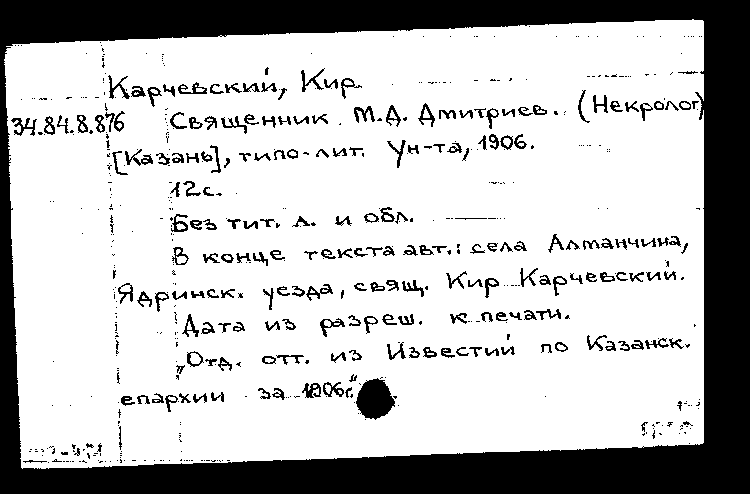 Карчевский, Кир.
34.84.8.876 Священник М.Д. Дмитриев. (Некролог)
[Казань], типо-лит. Ун-та, 1906.
12с.
Без тит. л. и обл.
В конце текста авт.: села Алманчина,
Ядринск. уезда, свящ. Кир Карчевский.
Дата из разреш. к печати.
„Отд. отт. из Известий по Казанск.
епархии за 1906г."